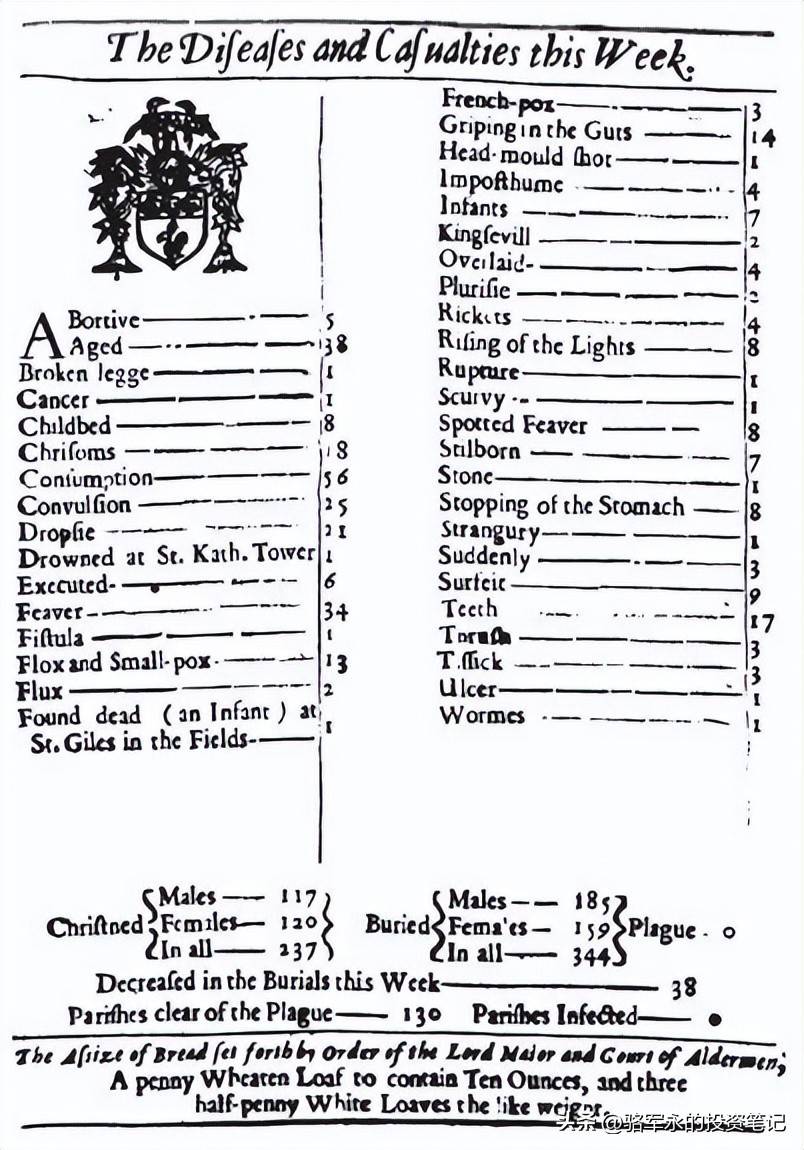 The Diſeaſes and Caſualties this Week.
ABortive 5
Aged 38
Broken legge 1
Cancer 1
Childbed 8
Chriſoms 18
Conſumption 56
Convulſion 25
Dropſie 21
Drowned at St. Kath. Tower 1
Executed 6
Feaver 34
Fiſtula 1
Flox and Small-pox 13
Flux 2
Found dead (an Infant) at
St. Giles in the Fields 1
French-pox 3
Griping in the Guts 14
Head-mould ſhot 1
Impoſthume 4
Infants 7
Kingſevill 2
Overlaid 4
Pluriſie 2
Rickets 4
Riſing of the Lights 8
Rupture 1
Scurvy 1
Spotted Feaver 8
Stilborn 7
Stone 1
Stopping of the Stomach 8
Strangury 1
Suddenly 3
Surfeit 9
Teeth 17
Thruſh 3
Tiſſick 3
Ulcer 1
Wormes 1
Chriſtned Males 117 Females 120 In all 237
Buried Males 185 Females 159 In all 344 Plague 0
Decreaſed in the Burials this Week 38
Pariſhes clear of the Plague 130 Pariſhes Infected
The Aſſize of Bread ſet forth by Order of the Lord Maior and Court of Aldermen;
A penny Wheaten Loaf to contain Ten Ounces, and three
half-penny White Loaves the like weight.
头条 @骆军永的投资笔记